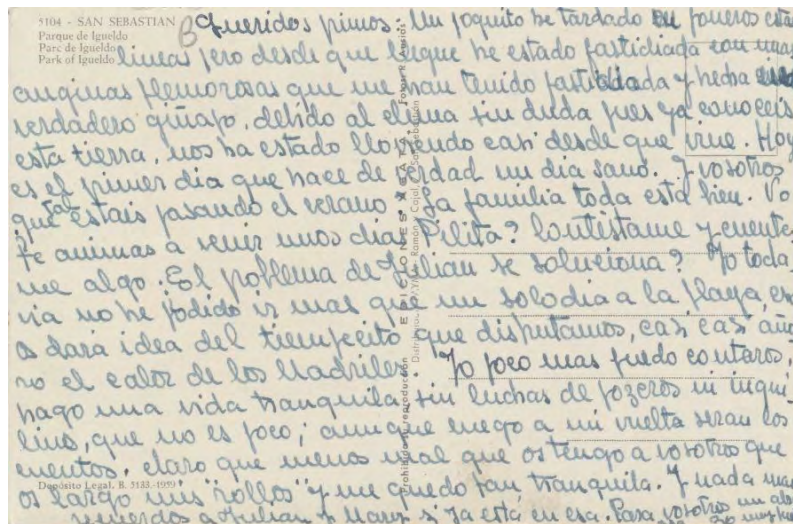 5104 - SAN SEBASTIAN
Parque de Igueldo
Parc de Igueldo
Park of Igueldo
Queridos primos. Un poquito he tardado en poneros estas
lineas pero desde que llegue he estado fastidiada con unas
anginas flemonosas que me han tenido fastidiada y hecha
verdadero guiñapo, debido al clima sin duda pues ya conoceis
esta tierra, nos ha estado lloviendo casi desde que vine. Hoy
es el primer dia que hace de verdad un dia sano. Y vosotros
que tal estais pasando el verano. La familia toda está bien.
Te animas a venir unos dias Pilita? Contéstame y cuente
me algo. El problema de Julian se soluciona? Yo toda
via no he podido ir mas que un solo dia a la playa,
os dara idea del tiempecito que disfrutamos, casi casi año
ro el calor de los Madriles. Yo poco mas puedo contaros,
hago una vida tranquila, sin luchas de pozeros ni inqui
linos, que no es poco; aunque luego a mi vuelta seran los
cuentos, claro que menos mal que os tengo a vosotros que
os largo mis "rollos" y me quedo tan tranquila. Y nada mas
recuerdos a Julian y Mary si ya está en esa. Para vosotros un
Depósito Legal, B. 5183.-1959
Prohibida su reproducción
EDICIONES
Fotos:
Ramón y Cajal,
San Sebastián